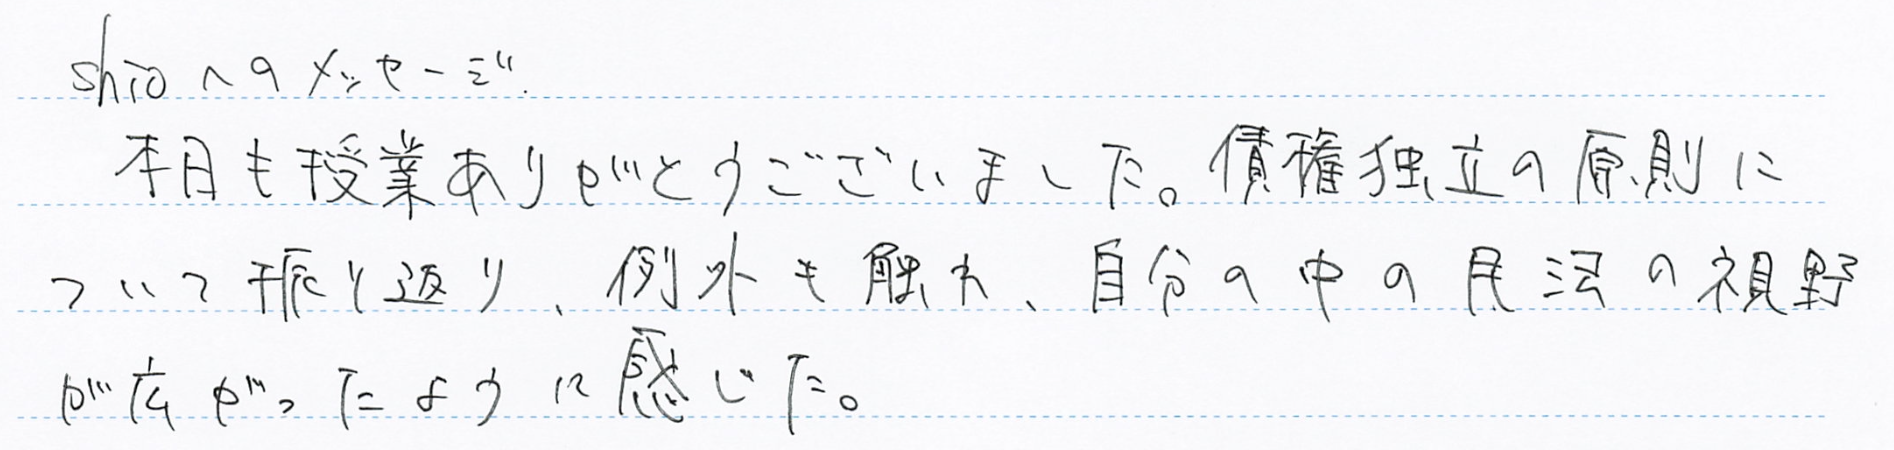 shioへのメッセージ.
本日も授業ありがとうございました。債権独立の原則に
ついて振り返り、例外も触れ、自分の中の民法の視野
が広がったように感じた。